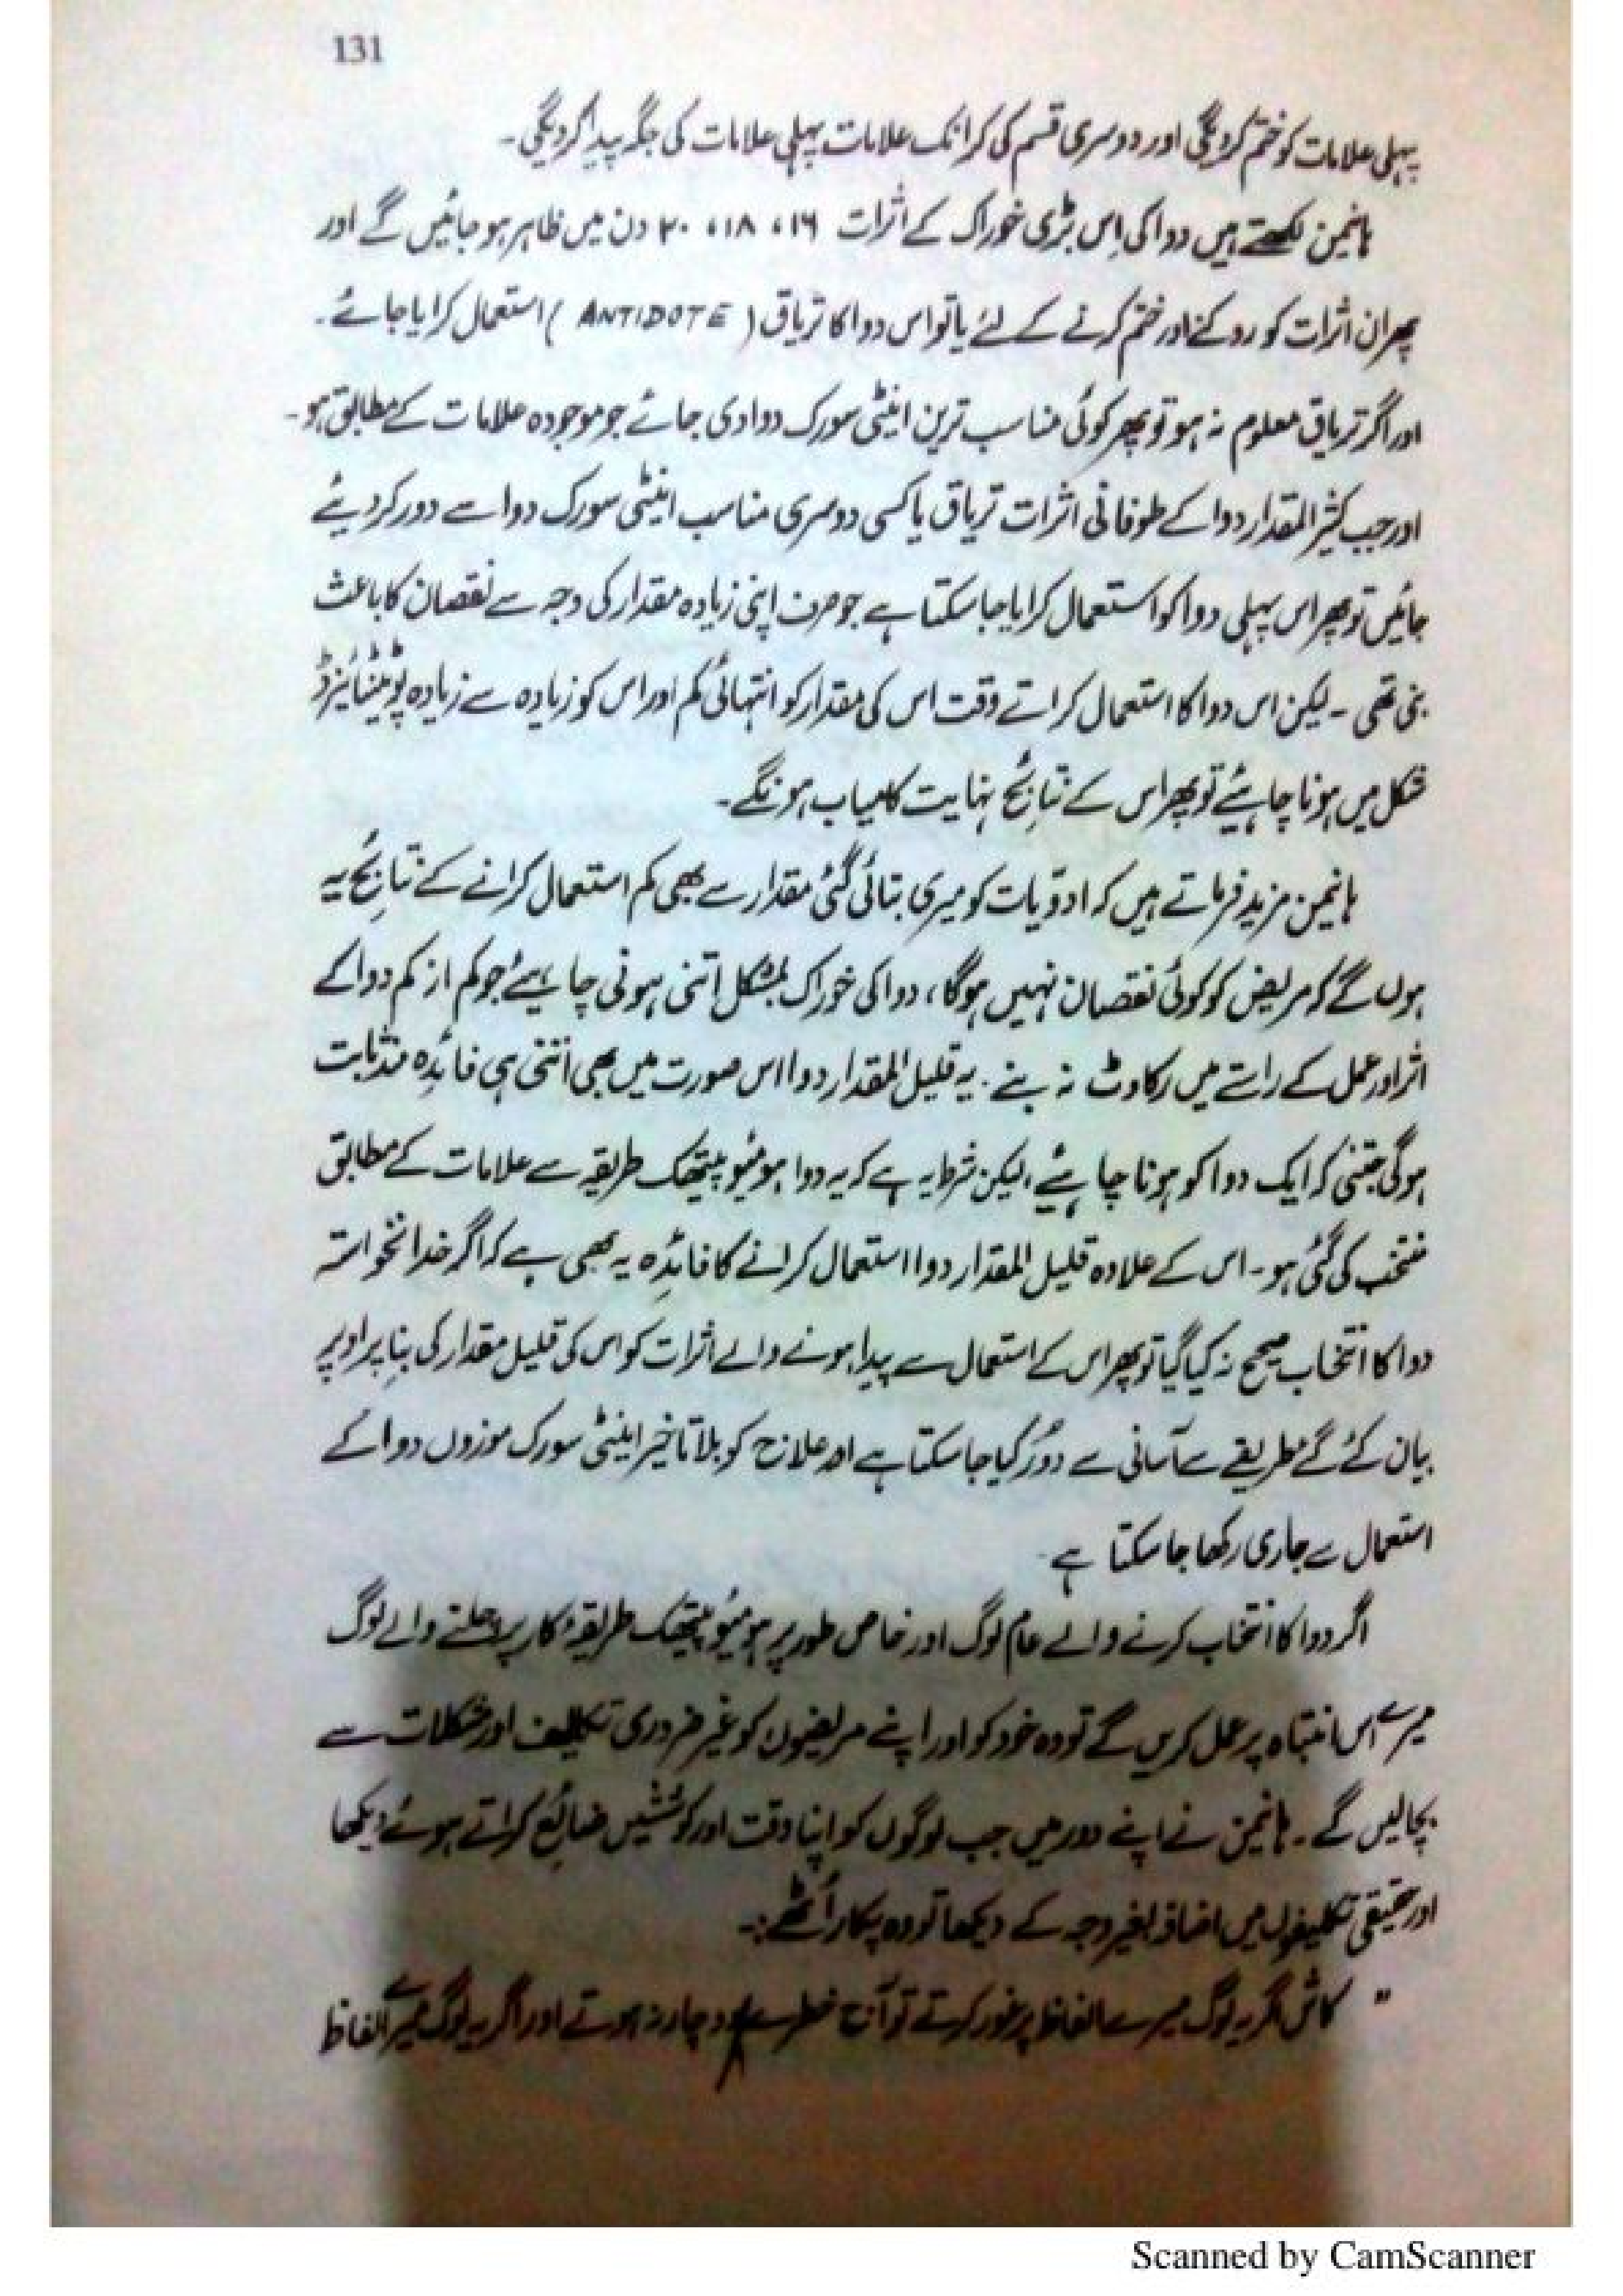 131
پہلی علامات کو ختم کردیگی اور دوسری قسم کی کرانک علامات پہلی علامات کی جگہ پیدا کردیگی۔
ہانیمن لکھتے ہیں دوا کی اِس بڑی خوراک کے اثرات ۱۶، ۱۸، ۲۰ دن میں ظاہر ہو جائیں گے اور
پھر ان اثرات کو روکنے اور ختم کرنے کے لئے یا تو اس دوا کا تریاق (ANTIDOTE) استعمال کرایا جائے۔
اور اگر تریاق معلوم نہ ہو تو پھر کوئی مناسب ترین اینٹی سورک دوا دی جائے جو موجودہ علامات کے مطابق ہو۔
اور جب کثیر المقدار دوا کے طوفانی اثرات تریاق یا کسی دوسری مناسب اینٹی سورک دوا سے دور کر دیئے
جائیں تو پھر اس پہلی دوا کو استعمال کرایا جا سکتا ہے جو صرف اپنی زیادہ مقدار کی وجہ سے نقصان کا باعث
بنی تھی ۔ لیکن اس دوا کا استعمال کراتے وقت اس کی مقدار کو انتہائی کم اور اس کو زیادہ سے زیادہ پوٹینٹائیزڈ
شکل میں ہونا چاہیئے تو پھر اس کے نتائج نہایت کامیاب ہونگے۔
ہانیمن مزید فرماتے ہیں کہ ادویات کو میری بتائی گئی مقدار سے بھی کم استعمال کرانے کے نتائج یہ
ہوں گے کہ مریض کو کوئی نقصان نہیں ہوگا، دوا کی خوراک بمشکل اتنی ہونی چاہیئے جو کم از کم دوا کے
اثر اور عمل کے راستے میں رکاوٹ نہ بنے۔ یہ قلیل المقدار دوا اس صورت میں بھی اتنی ہی فائدہ مند ثابت
ہوگی جتنی کہ ایک دوا کو ہونا چاہیئے، لیکن شرط یہ ہے کہ یہ دوا ہومیوپیتھک طریقہ سے علامات کے مطابق
منتخب کی گئی ہو۔ اس کے علاوہ قلیل المقدار دوا استعمال کرانے کا فائدہ یہ بھی ہے کہ اگر خدانخواستہ
دوا کا انتخاب صحیح نہ کیا گیا تو پھر اس کے استعمال سے پیدا ہونے والے اثرات کو اس کی قلیل مقدار کی بناِ پر اوپر
بیان کئے گئے طریقے سے آسانی سے دُور کیا جا سکتا ہے اور علاج کو بلا تاخیر اینٹی سورک موزوں دوا کے
استعمال سے جاری رکھا جا سکتا ہے
اگر دوا کا انتخاب کرنے والے عام لوگ اور خاص طور پر ہومیوپیتھک طریقۂ کار پر چلنے والے لوگ
میرے اس انتباہ پر عمل کریں گے تو وہ خود کو اور اپنے مریضوں کو غیر ضروری تکلیف اور مشکلات سے
بچالیں گے ۔ ہانیمن نے اپنے دور میں جب لوگوں کو اپنا وقت اور کوششیں ضائع کراتے ہوئے دیکھا
اور حقیقی تکلیفوں میں اضافہ بغیر وجہ کے دیکھا تو وہ پکار اُٹھے:۔
" کاش اگر یہ لوگ میرے الفاظ پر غور کرتے تو آج خطرے سے دوچار نہ ہوتے اور اگر یہ لوگ میرے الفاظ
Scanned by CamScanner